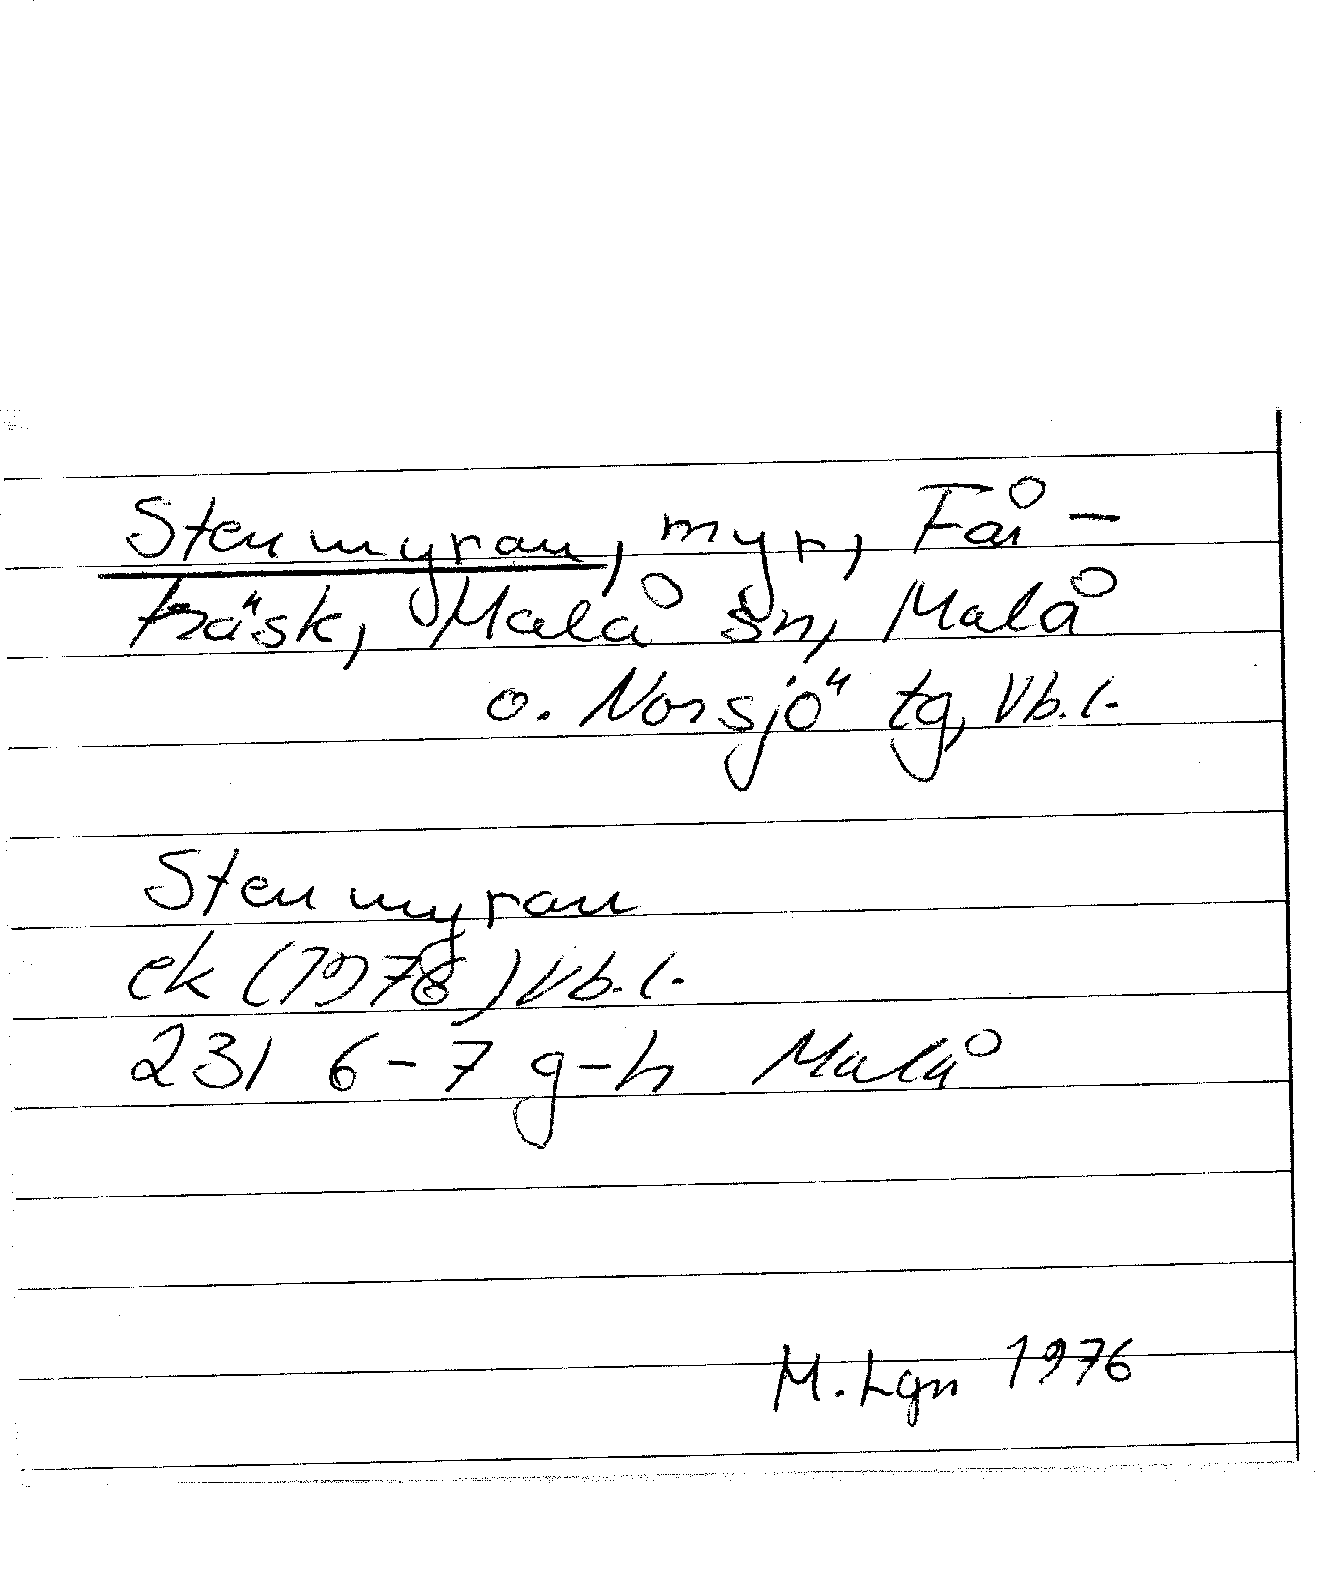 Stenmyran, myr, Få-
träsk, Malå sn, Malå
o. Norsjö tg, Vb.l.
Stenmyran
ek (1976) Vb.l.
231 6-7 g-h Malå
M. Lgn 1976